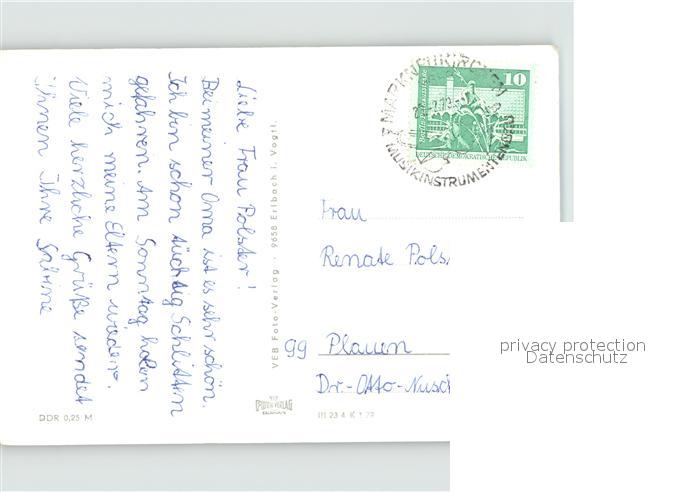 Liebe Frau Polster!
Bei meiner Oma ist es sehr schön.
Ich bin schon tüchtig Schlitten
gefahren. Am Sonntag holen
mich meine Eltern wieder.
Viele herzliche Grüße sendet
Ihnen Ihre Sabine
DDR 0,25 M
VEB Foto-Verlag · 9658 Erlbach i. Vogtl.
MARKNEUKIRCHEN
MUSIKINSTRUMENTEN
10
DEUTSCHE DEMOKRATISCHE REPUBLIK
Frau
Renate Pols
99 Plauen
Dr.-Otto-Nusch
privacy protection
Datenschutz